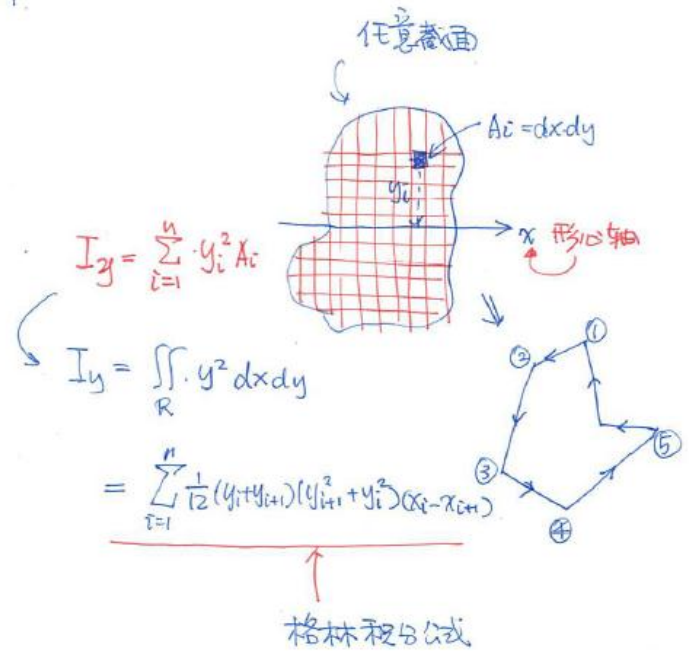 任意截面
Ai = dx·dy
yi
x 形心轴
Iy = ∑_{i=1}^{n} · yi² Ai
Iy = ∬_R · y² dxdy
= ∑_{i=1}^{n} 1/12 (yi+yi+1)(y²i+1+yi²)(xi-xi+1)
①
②
③
④
⑤
格林积分公式